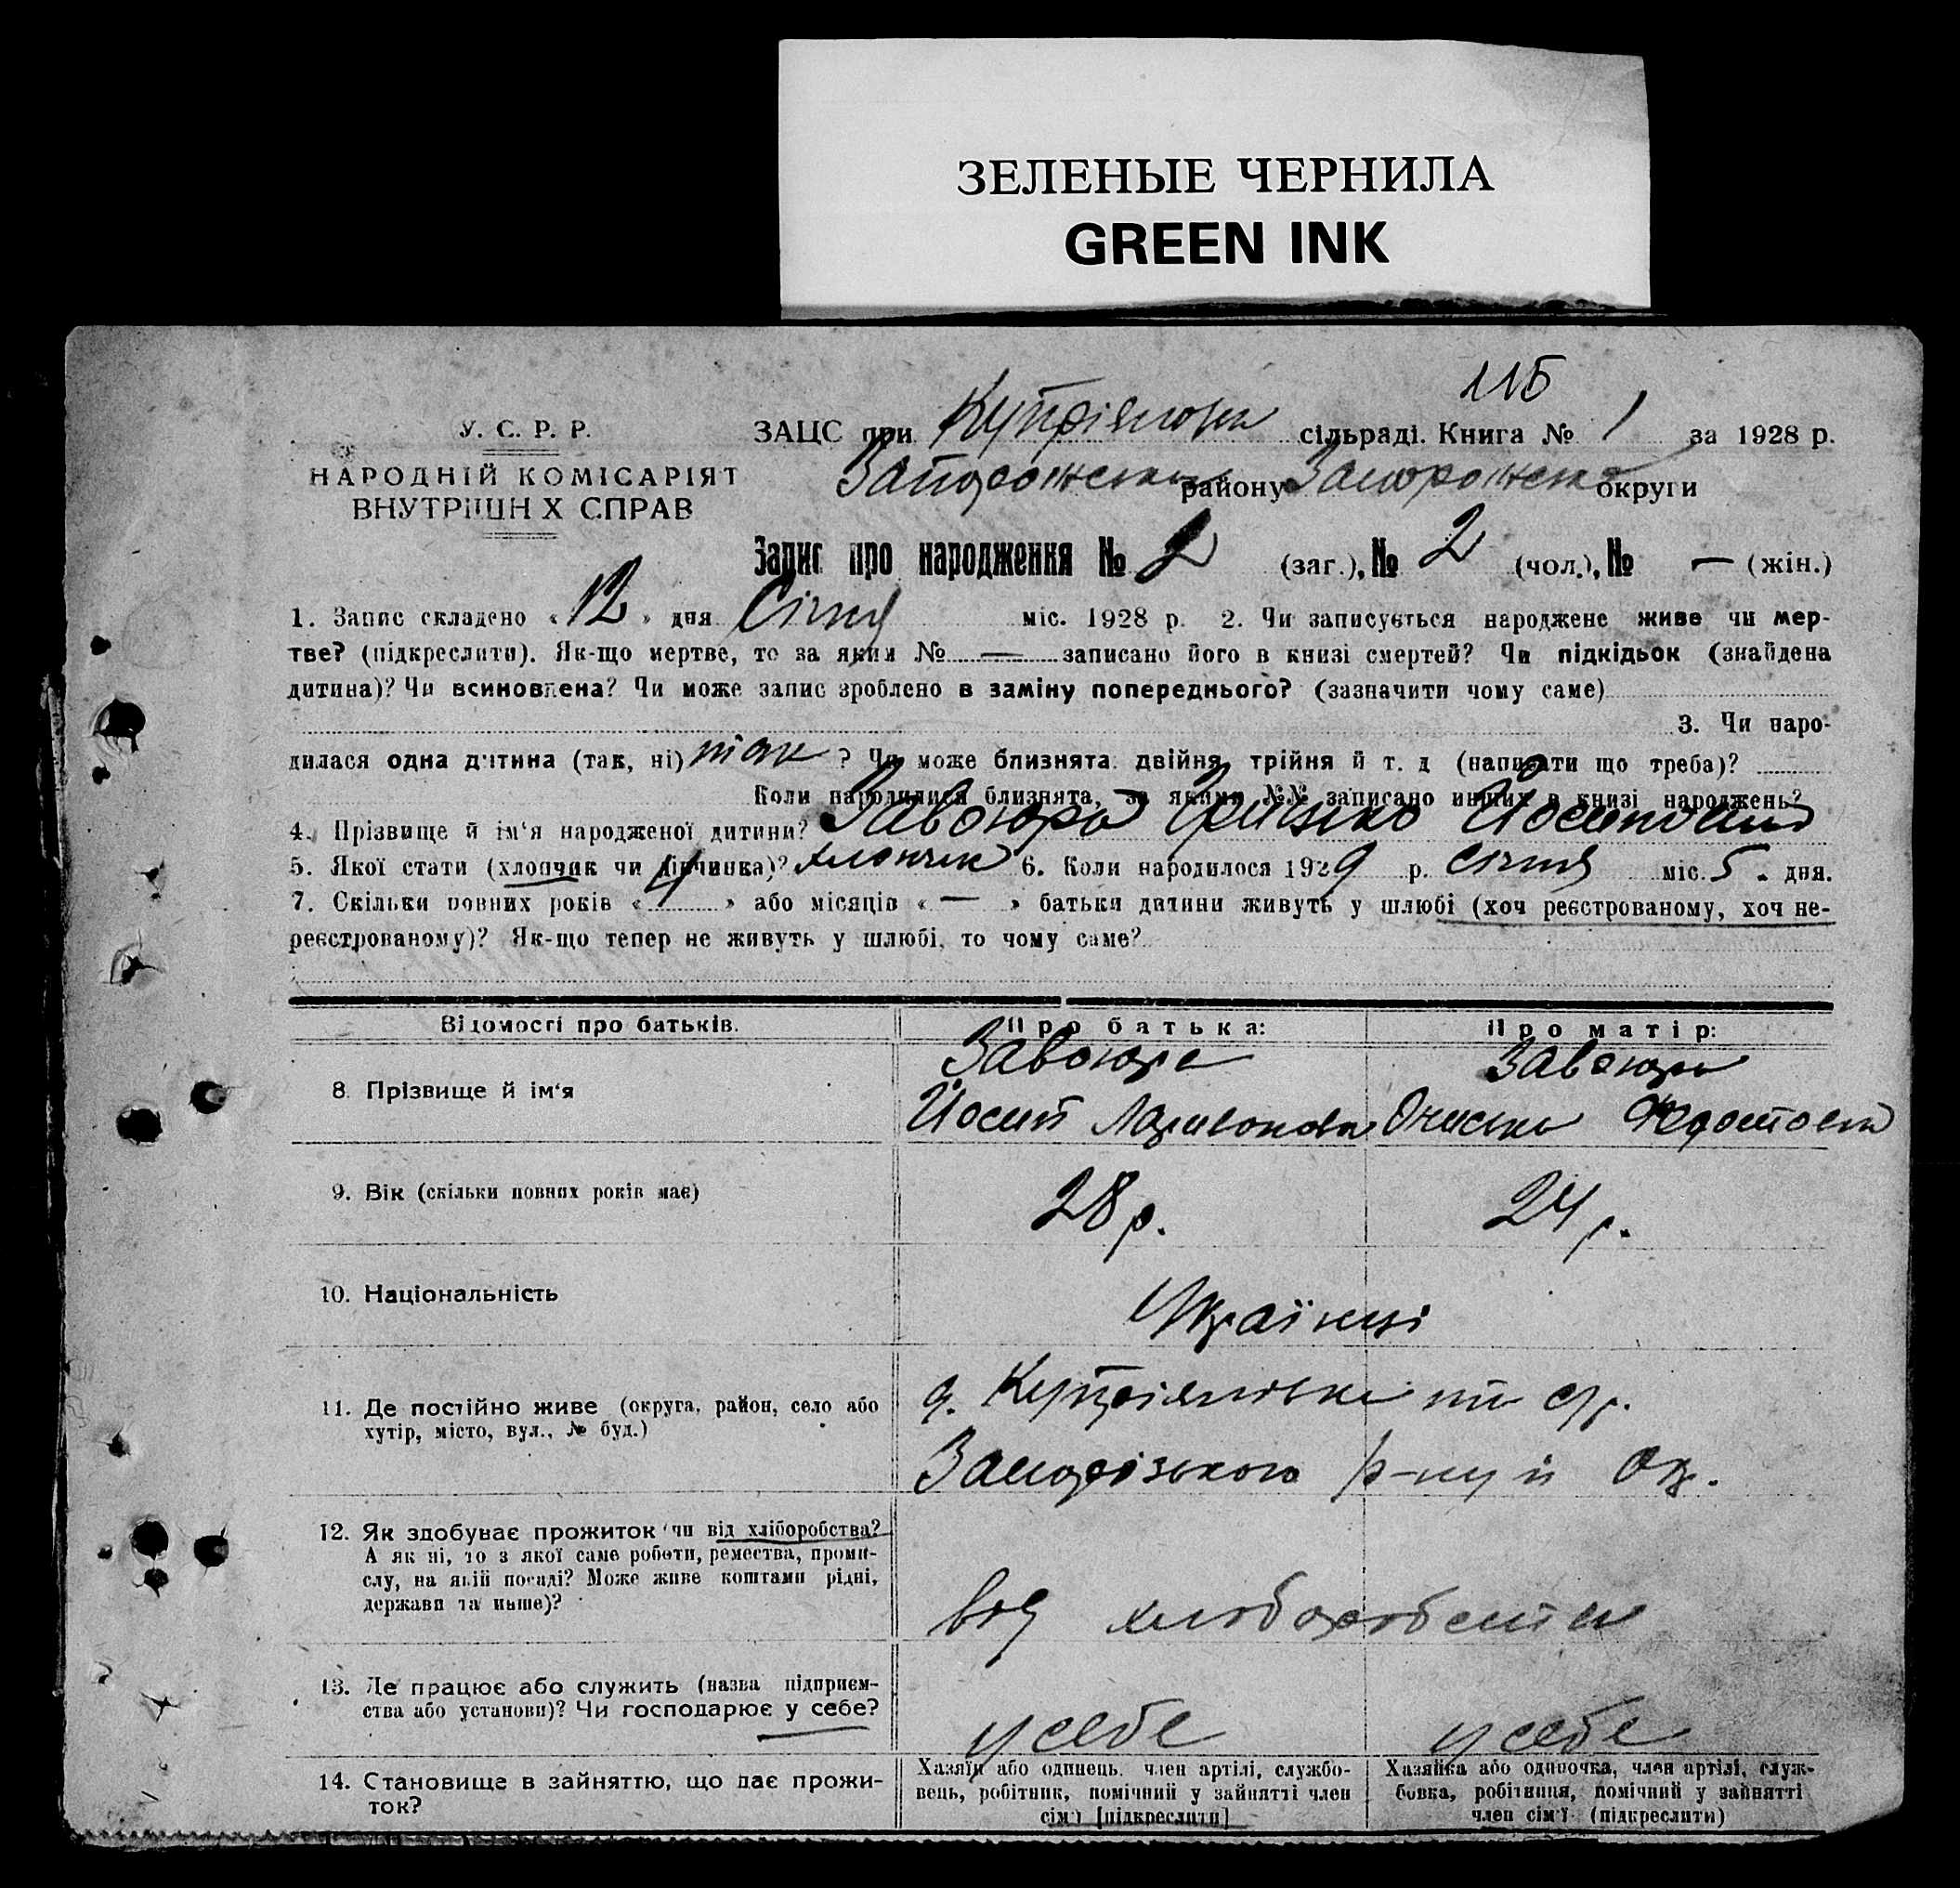 ЗЕЛЕНЫЕ ЧЕРНИЛА
GREEN INK
115
У. С. Р. Р.
НАРОДНІЙ КОМІСАРІЯТ
ВНУТРІШНІХ СПРАВ
ЗАЦС при сільраді. Книга № 1 за 1928 р.
району округи
Запис про народження № 2 (заг.), № 2 (чол.), № — (жін.)
1. Запис складено «12» дня Січня міс. 1928 р. 2. Чи записується народжене живе чи мер-
тве? (підкреслити). Як-що мертве, то за яким № — записано його в книзі смертей? Чи підкідьок (знайдена
дитина)? Чи всиновлена? Чи може запис зроблено в заміну попереднього? (зазначити чому саме)
3. Чи наро-
дилася одна дитина (так, ні) так ? Чи може близнята двійня, трійня й т. д (написати що треба)?
Коли народилися близнята, за якими №№ записано инших в книзі народжень?
4. Прізвище й ім'я народженої дитини? Завоюра Грицько
5. Якої стати (хлопчик чи дівчинка)? хлопчик 6. Коли народилося 1929 р. Січня міс. 5. дня.
7. Скільки повних років « » або місяців « — » батьки дитини живуть у шлюбі (хоч реєстрованому, хоч не-
реєстрованому)? Як-що тепер не живуть у шлюбі, то чому саме?
Відомості про батьків. Про батька: Про матір:
Завоюра Завоюра
8. Прізвище й ім'я
Йосип
9. Вік (скільки повних років має) 28 р. 24 р.
10. Національність Українці
11. Де постійно живе (округа, район, село або
хутір, місто, вул., № буд.)
Запорізького р-ну й Окр.
12. Як здобуває прожиток чи від хліборобства?
А як ні, то з якої саме роботи, ремества, проми-
слу, на якій посаді? Може живе коштами рідні,
держави та инше)?
від хліборобства
13. Де працює або служить (назва підприєм-
ства або установи)? Чи господарює у себе?
у себе у себе
14. Становище в зайняттю, що дає прожи-
ток?
Хазяїн або одинець, член артілі, службо-
вець, робітник, помічний у зайнятті член
сім'ї [підкреслити]
Хазяйка або одиночка, член артілі, служ-
бовка, робітниця, помічний у зайнятті
член сім'ї (підкреслити)